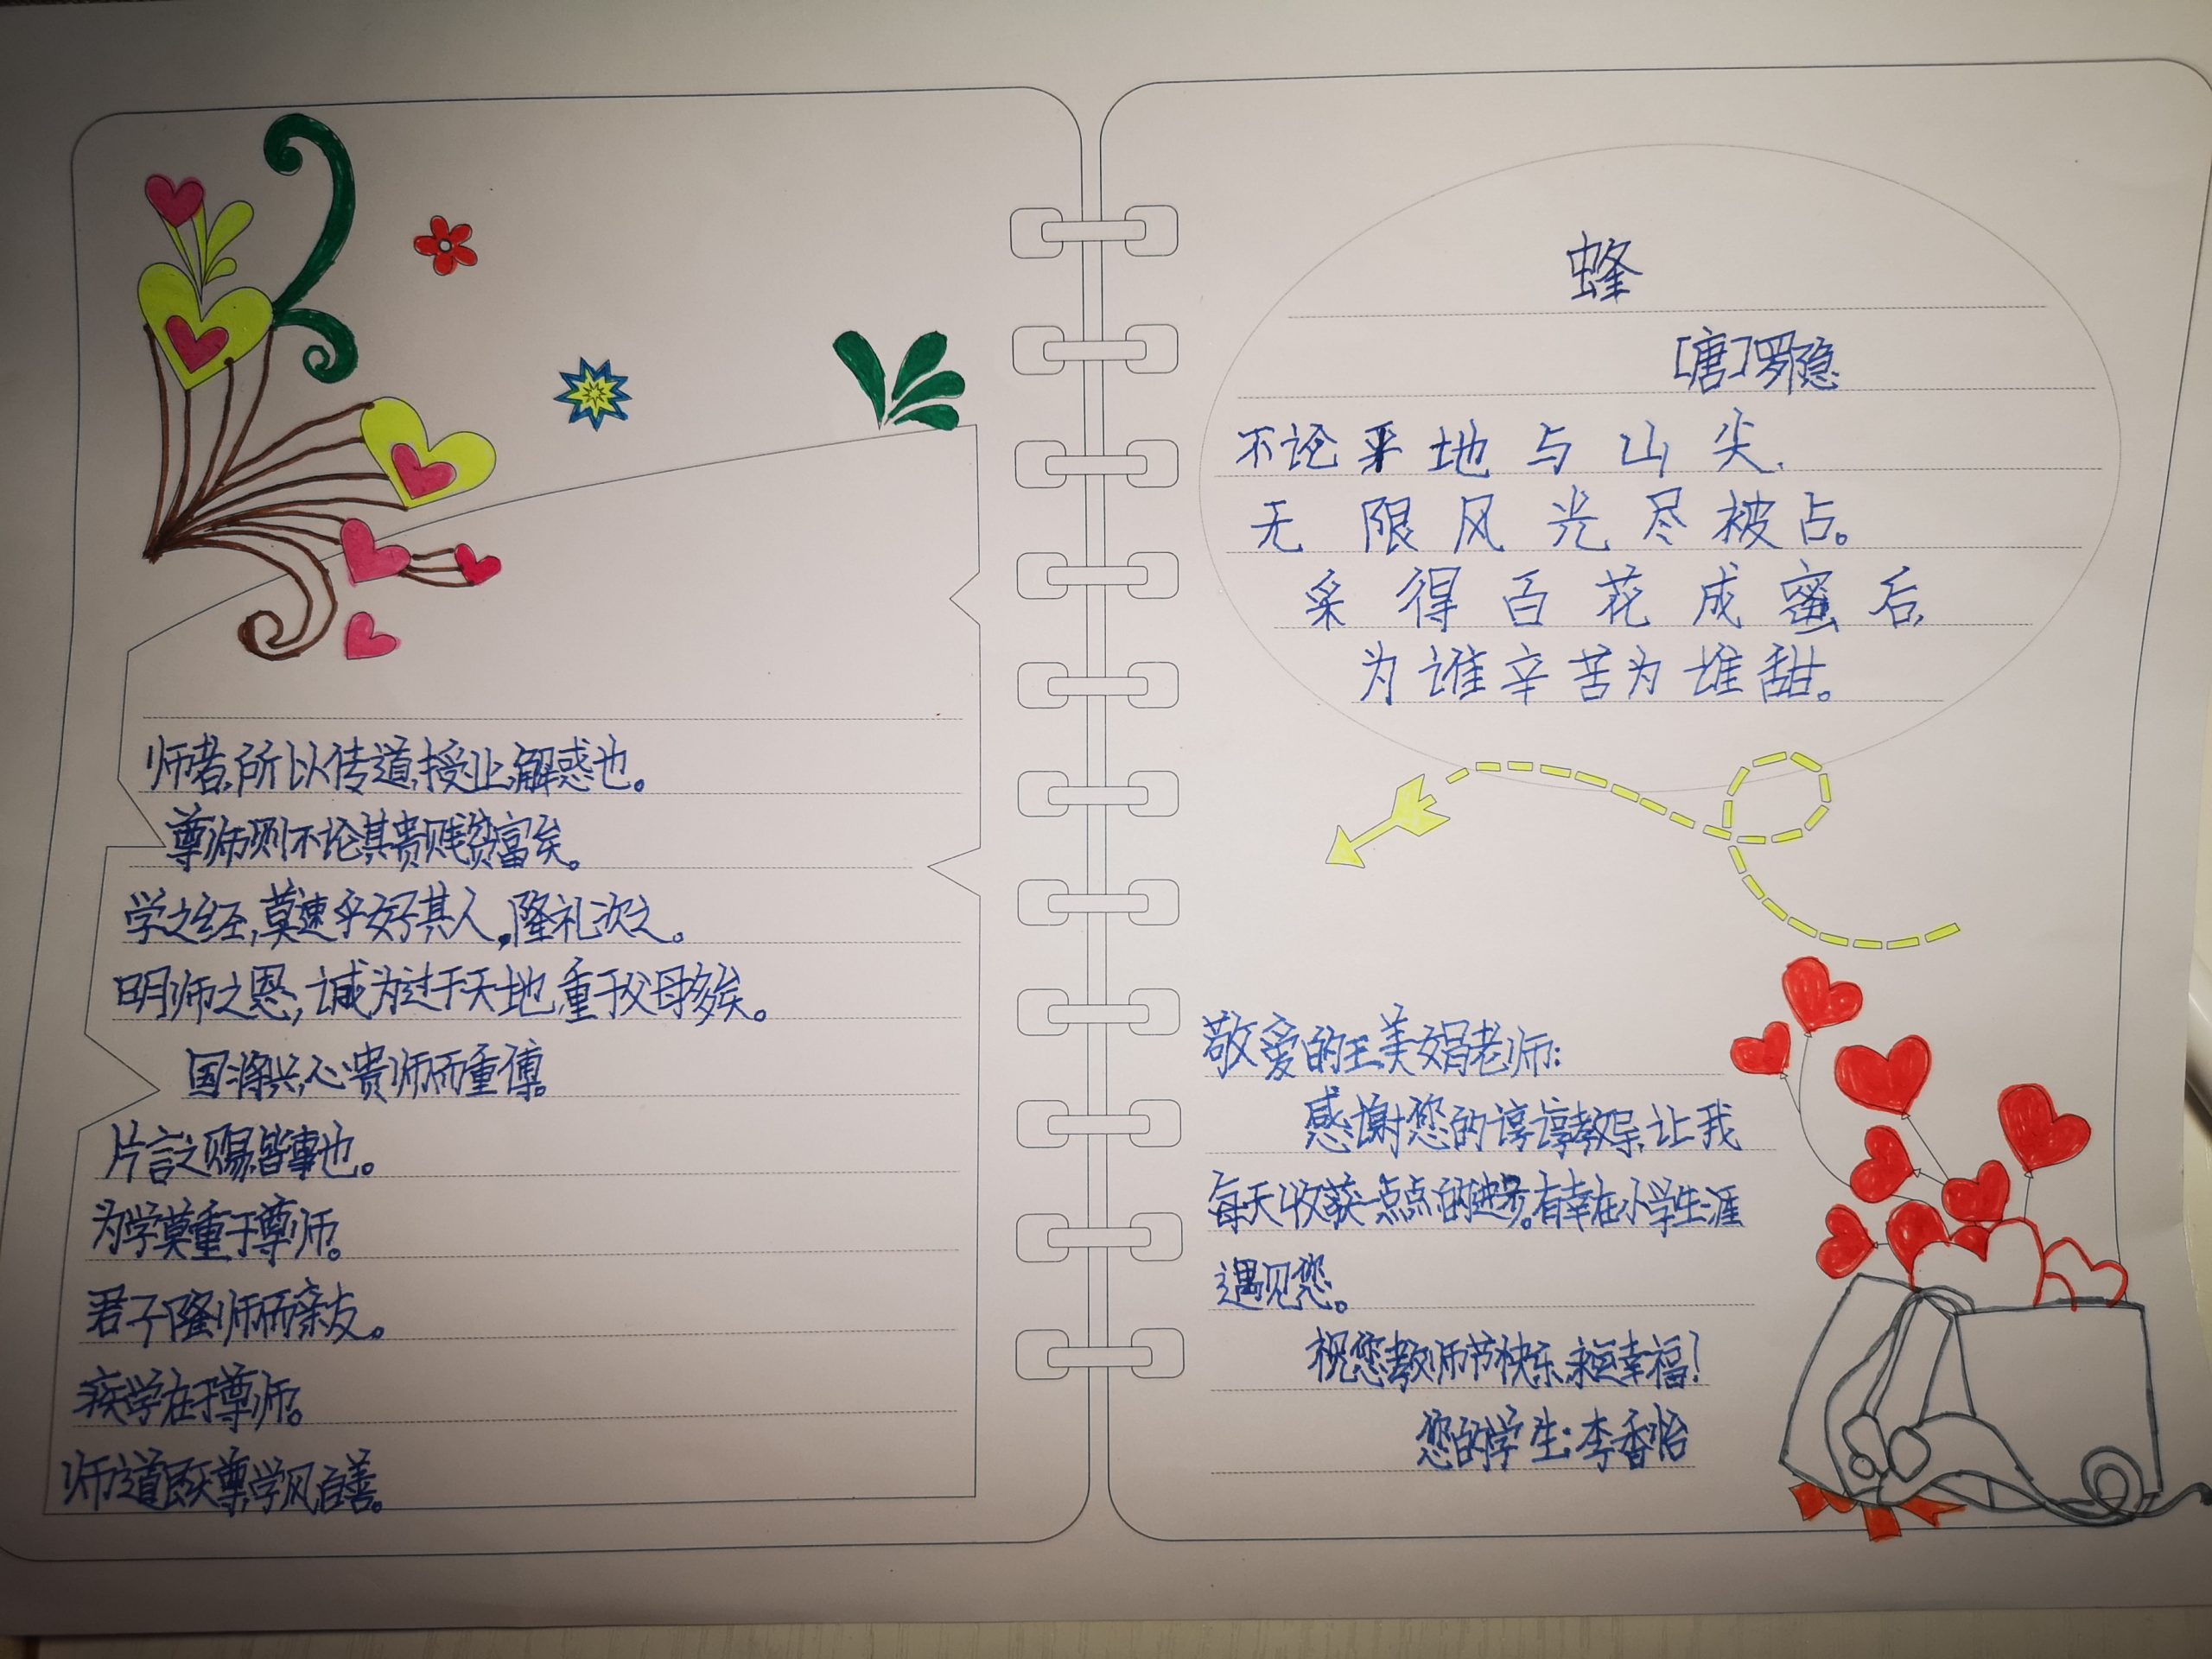 师者,所以传道,授业,解惑也。
尊师则不论其贵贱贫富矣。
学之经,莫速乎好其人,隆礼次之。
明师之恩,诚为过于天地,重于父母多矣。
国将兴,心贵师而重傅。
片言之赐,皆事也。
为学莫重于尊师。
君子隆师而亲友。
疾学在于尊师。
师道既尊,学风自善。
蜂
[唐]罗隐
不论平地与山尖,
无限风光尽被占。
采得百花成蜜后,
为谁辛苦为谁甜。
敬爱的王美娟老师:
感谢您的谆谆教导,让我
每天收获一点点的进步。有幸在小学生涯
遇见您。
祝您教师节快乐,永远幸福!
您的学生:李香怡